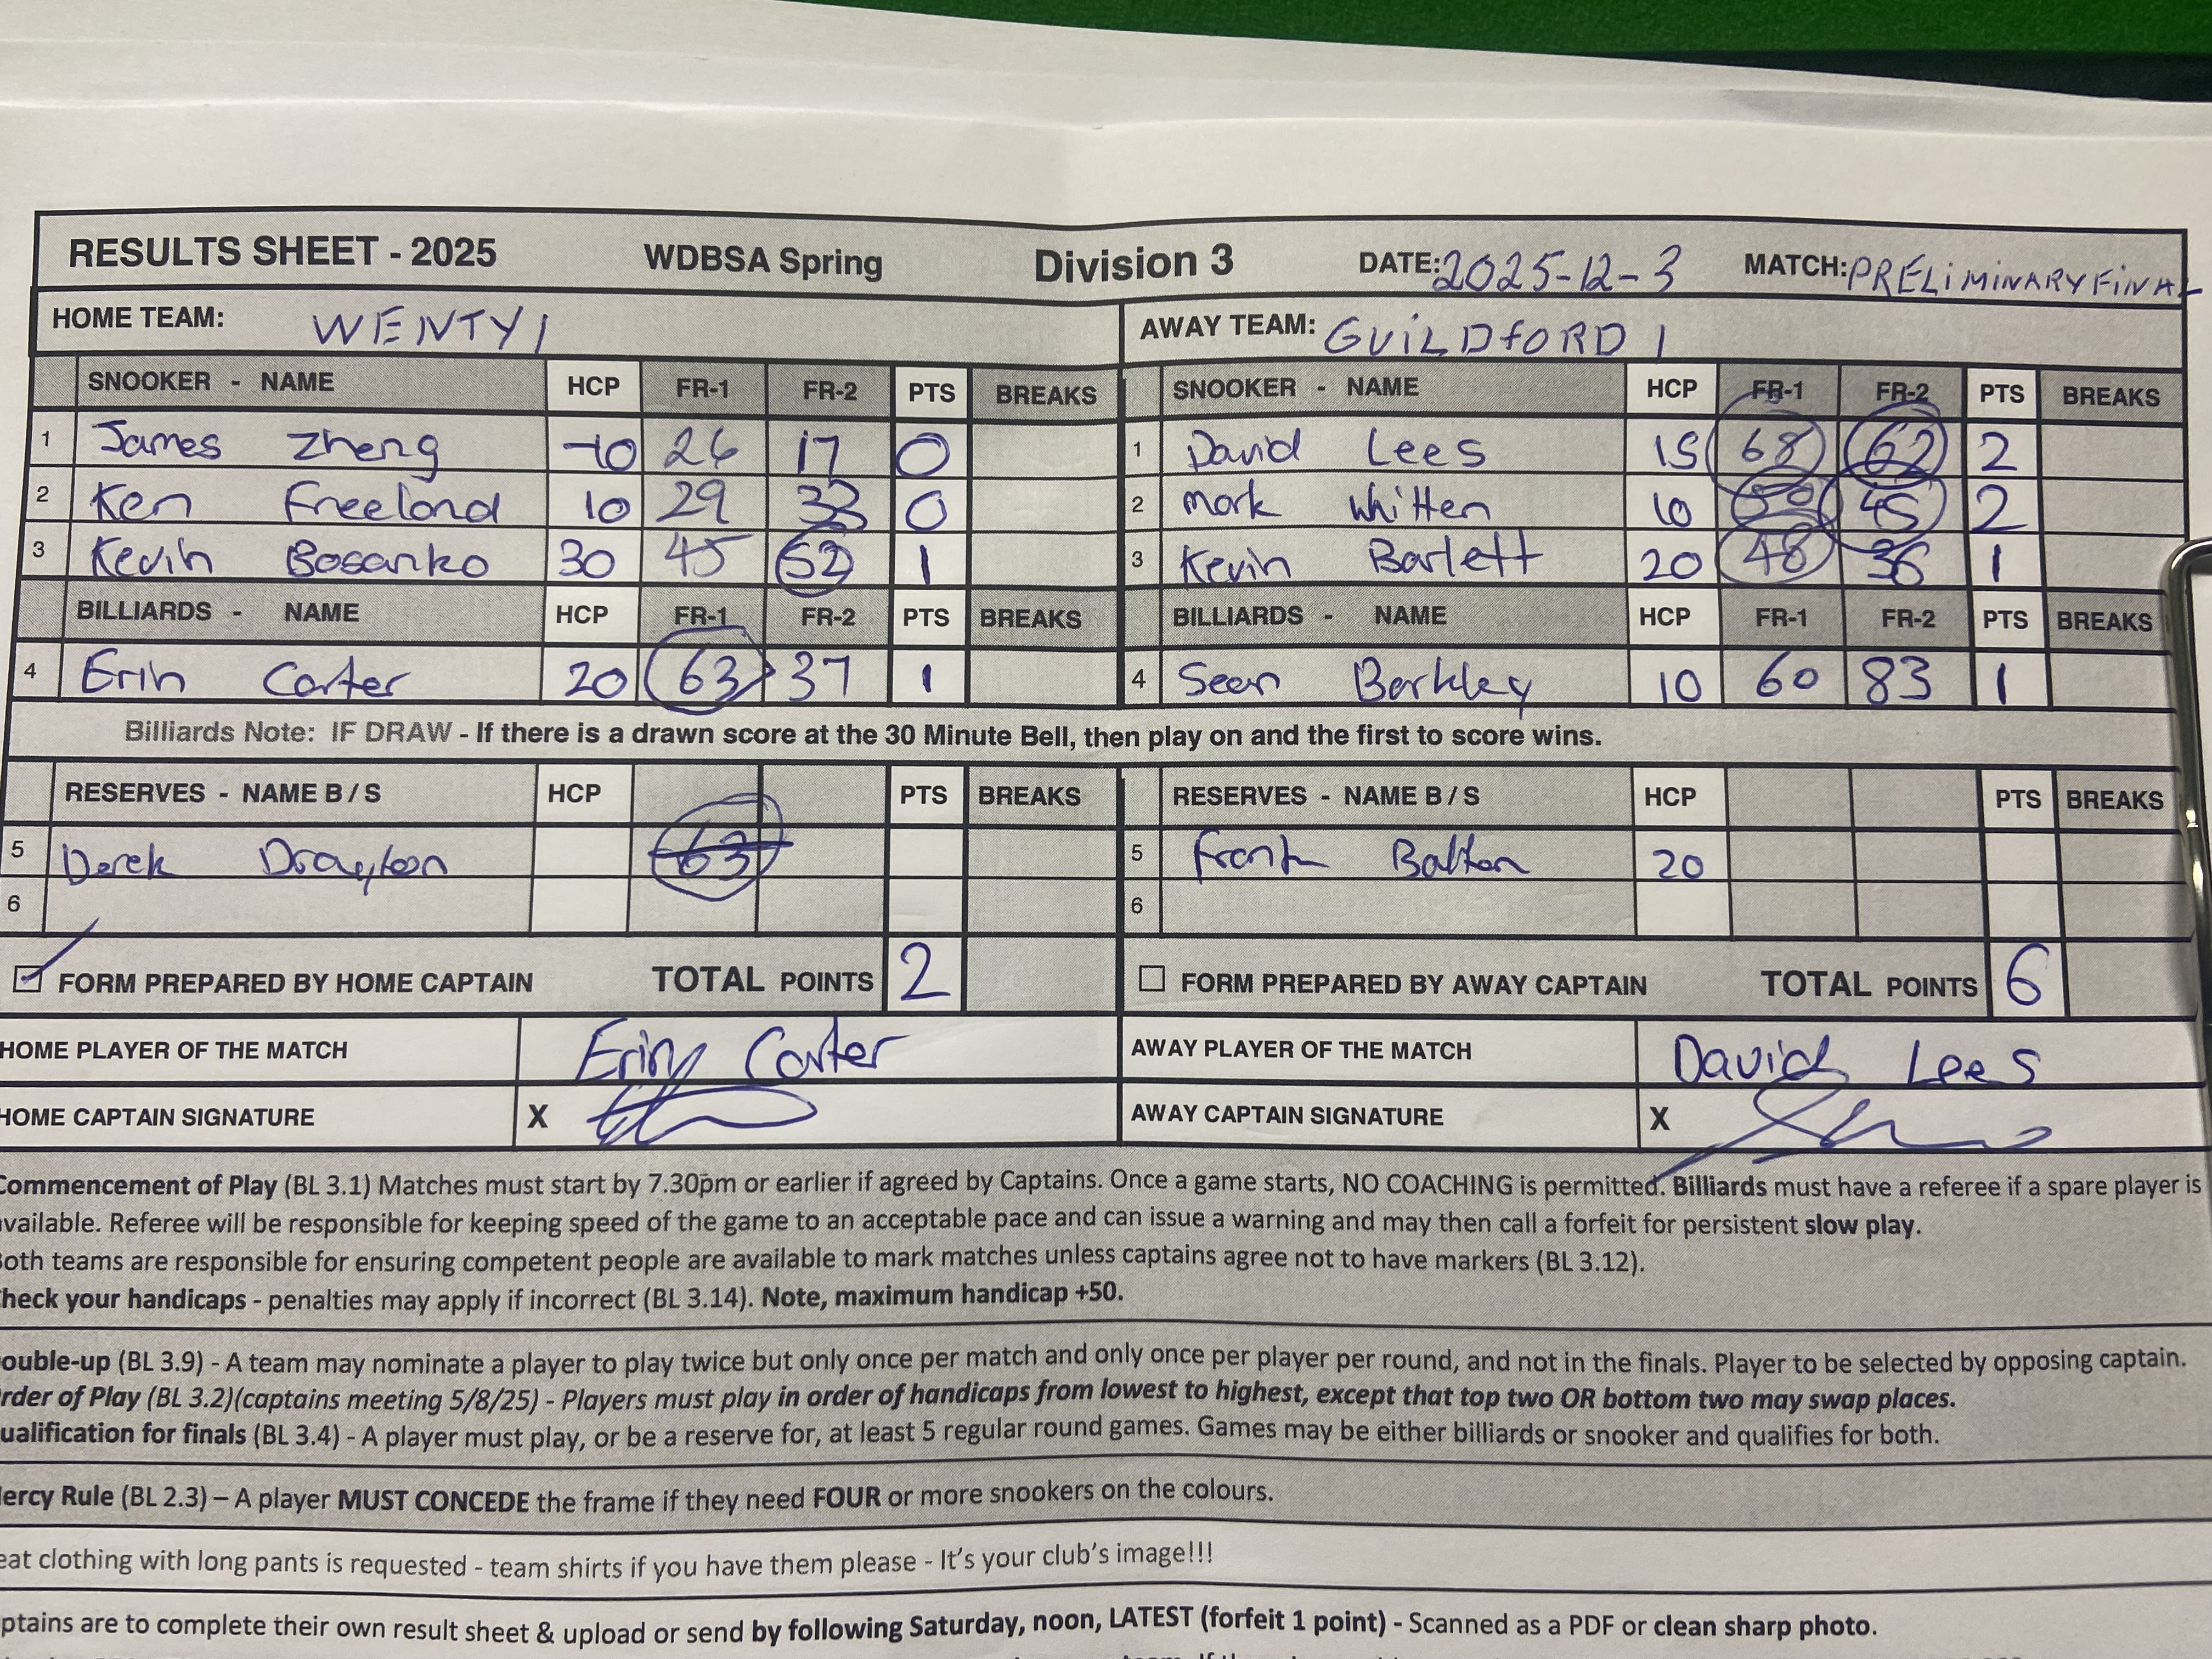 RESULTS SHEET - 2025 WDBSA Spring Division 3 DATE: 2025-12-3 MATCH: PRELIMINARY FINAL
HOME TEAM: WENTY 1 AWAY TEAM: GUILDFORD 1
SNOOKER - NAME HCP FR-1 FR-2 PTS BREAKS SNOOKER - NAME HCP FR-1 FR-2 PTS BREAKS
1 James Zheng -10 26 17 0 1 David Lees 15 68 62 2
2 Ken Freeland 10 29 33 0 2 Mark Whitten 10 50 45 2
3 Kevin Bosanko 30 45 52 1 3 Kevin Barlett 20 48 36 1
BILLIARDS - NAME HCP FR-1 FR-2 PTS BREAKS BILLIARDS - NAME HCP FR-1 FR-2 PTS BREAKS
4 Erin Carter 20 63 37 1 4 Sean Barkley 10 60 83 1
Billiards Note: IF DRAW - If there is a drawn score at the 30 Minute Bell, then play on and the first to score wins.
RESERVES - NAME B / S HCP PTS BREAKS RESERVES - NAME B / S HCP PTS BREAKS
5 Derek Drayton 63 5 Frank Balton 20
6 6
FORM PREPARED BY HOME CAPTAIN TOTAL POINTS 2 FORM PREPARED BY AWAY CAPTAIN TOTAL POINTS 6
HOME PLAYER OF THE MATCH Erin Carter AWAY PLAYER OF THE MATCH David Lees
HOME CAPTAIN SIGNATURE X AWAY CAPTAIN SIGNATURE X
Commencement of Play (BL 3.1) Matches must start by 7.30pm or earlier if agreed by Captains. Once a game starts, NO COACHING is permitted. Billiards must have a referee if a spare player is
available. Referee will be responsible for keeping speed of the game to an acceptable pace and can issue a warning and may then call a forfeit for persistent slow play.
Both teams are responsible for ensuring competent people are available to mark matches unless captains agree not to have markers (BL 3.12).
Check your handicaps - penalties may apply if incorrect (BL 3.14). Note, maximum handicap +50.
ouble-up (BL 3.9) - A team may nominate a player to play twice but only once per match and only once per player per round, and not in the finals. Player to be selected by opposing captain.
rder of Play (BL 3.2)(captains meeting 5/8/25) - Players must play in order of handicaps from lowest to highest, except that top two OR bottom two may swap places.
ualification for finals (BL 3.4) - A player must play, or be a reserve for, at least 5 regular round games. Games may be either billiards or snooker and qualifies for both.
ercy Rule (BL 2.3) – A player MUST CONCEDE the frame if they need FOUR or more snookers on the colours.
eat clothing with long pants is requested - team shirts if you have them please - It's your club's image!!!
ptains are to complete their own result sheet & upload or send by following Saturday, noon, LATEST (forfeit 1 point) - Scanned as a PDF or clean sharp photo.